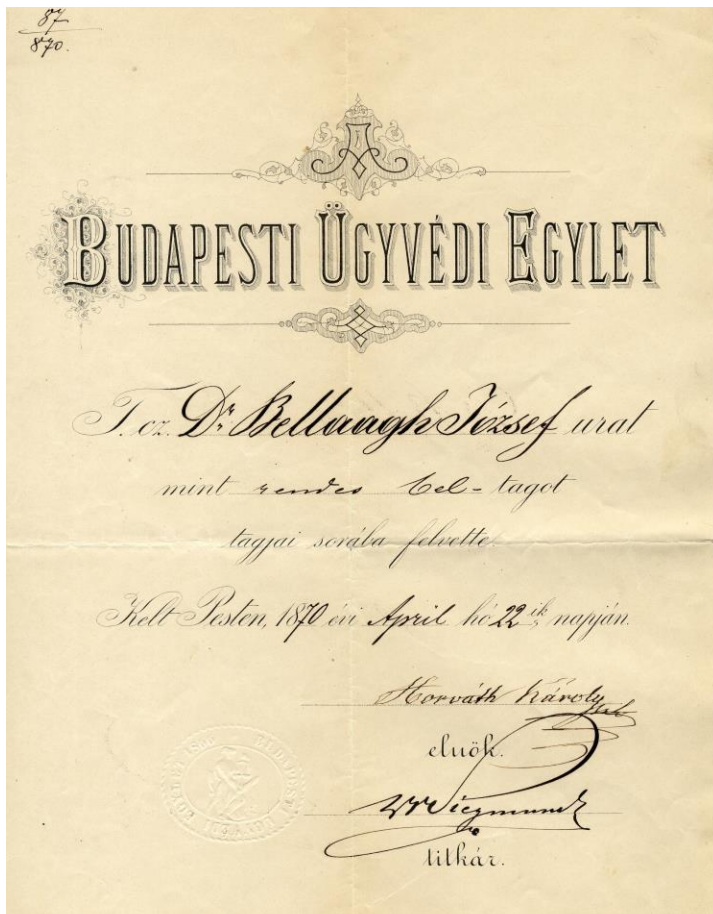 87
870.
BUDAPESTI ÜGYVÉDI EGYLET
T. cz. Dr. Bellaagh József urat
mint rendes bel-tagot
tagjai sorába felvette.
Kelt Pesten, 1870 évi April hó 22ik napján.
Horváth Károly
elnök.
titkár.